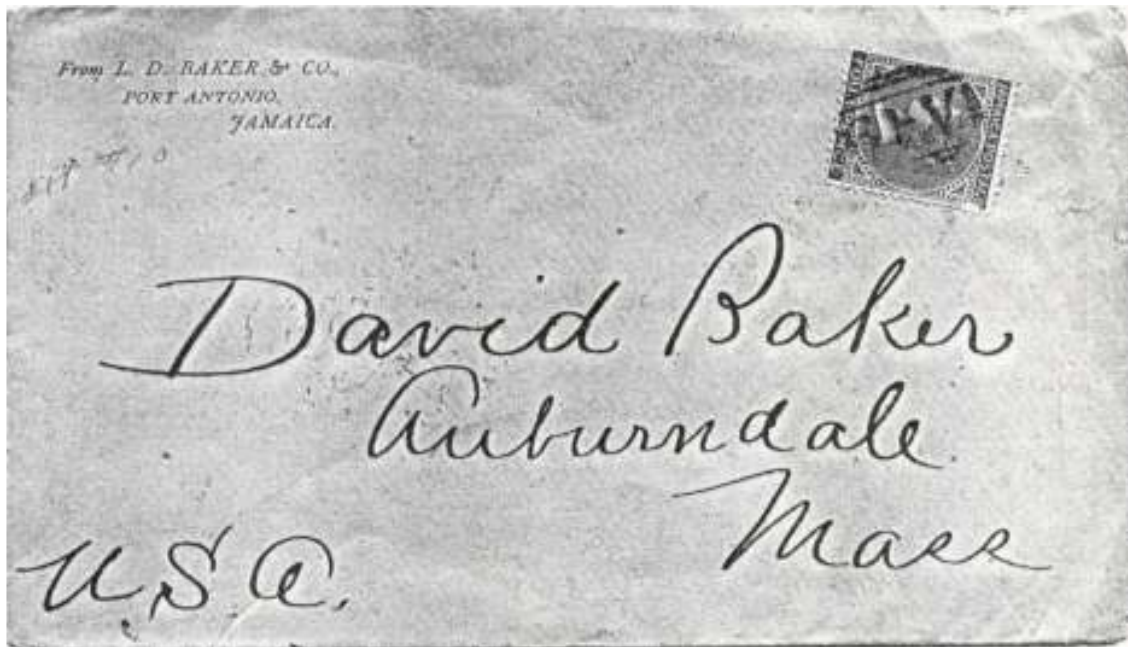 From L. D. BAKER & CO.,
PORT ANTONIO,
JAMAICA.
David Baker
Auburndale
Mass
U.S.A.